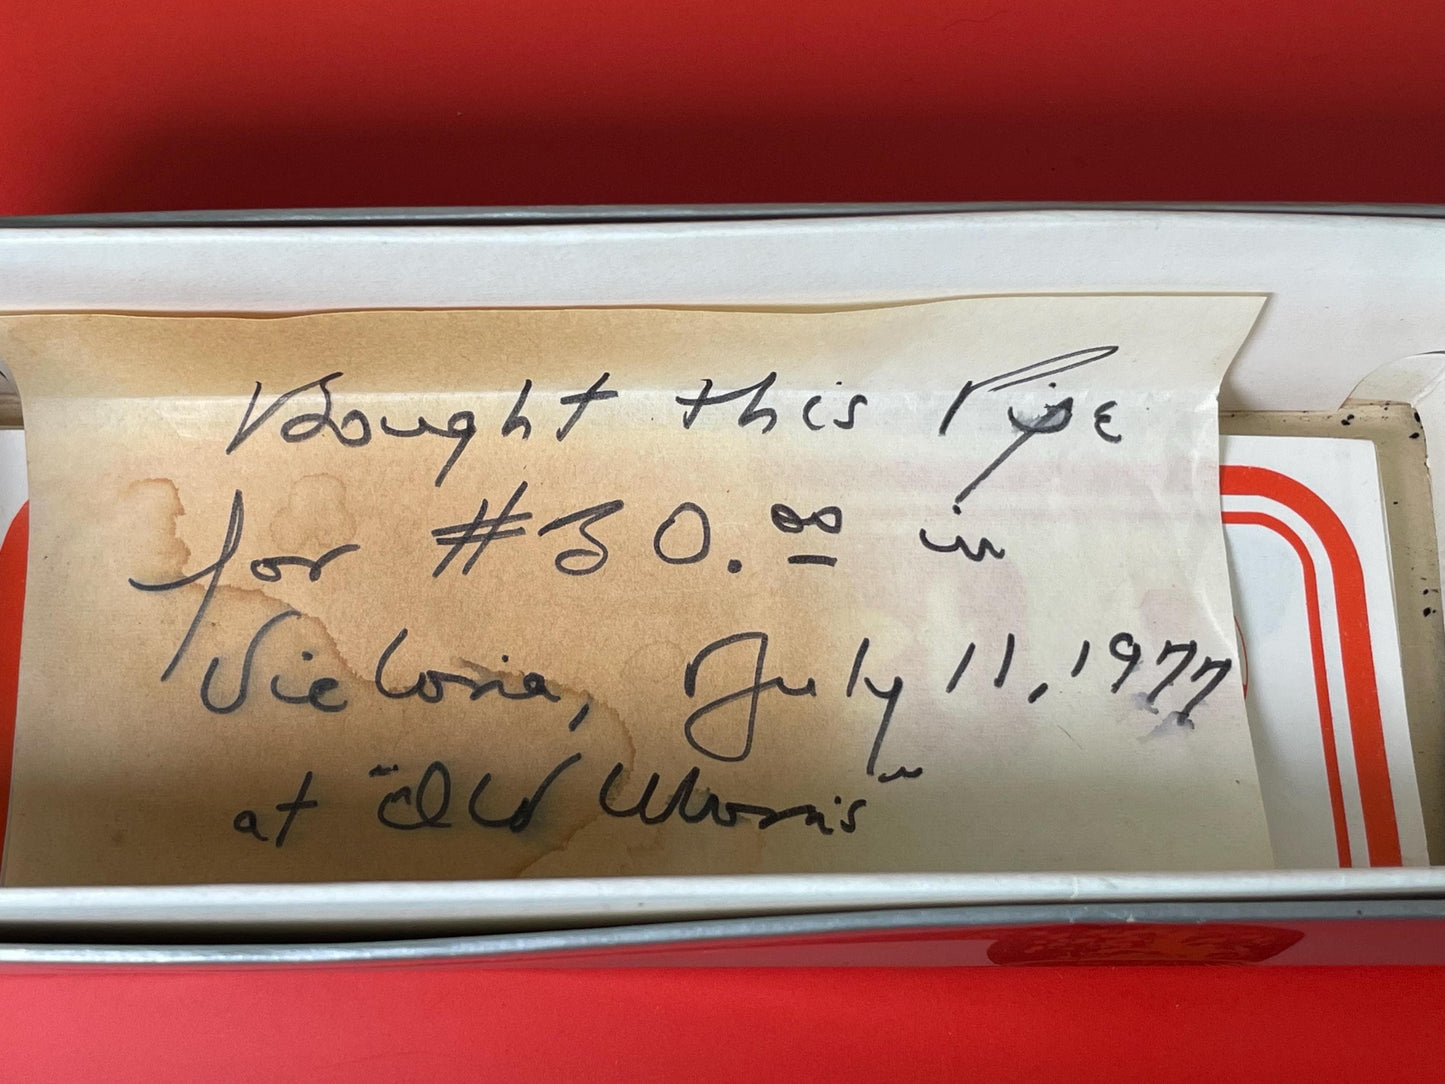 Bought this Pipe
for #30.00 in
Victoria, July 11, 1977
at "Old Morris"